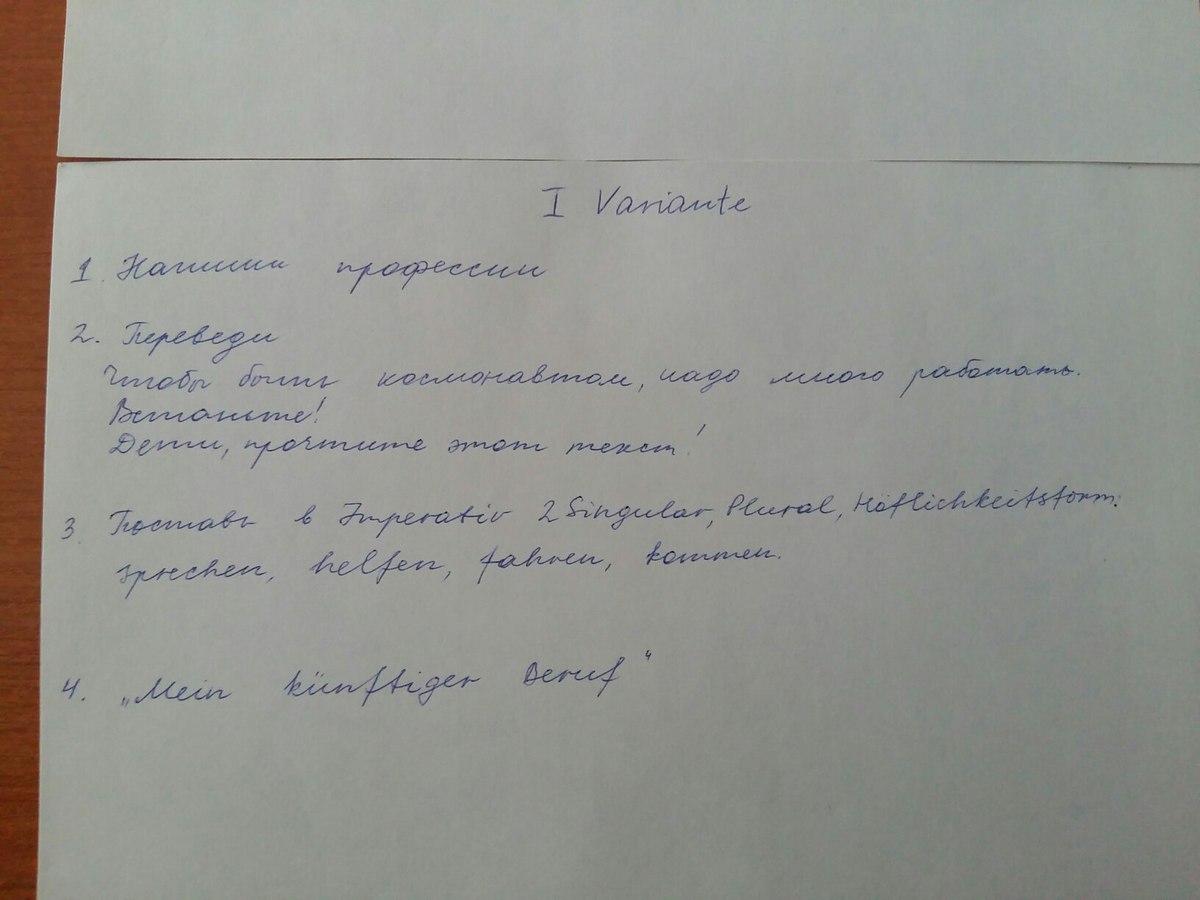 I Variante
1. Напиши профессии
2. Переведи
Чтобы быть космонавтом, надо много работать.
Встаньте!
Дети, прочтите этот текст!
3. Поставь в Imperativ 2 Singular, Plural, Höflichkeitsform:
sprechen, helfen, fahren, kommen.
4. „Mein künftiger Beruf“